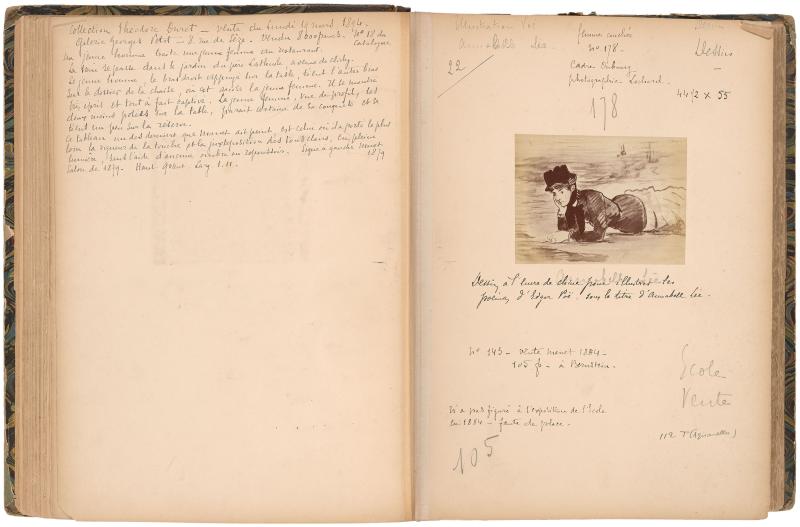 Collection Théodore Duret – vente du lundi 19 mars 1894.
Galerie Georges Petit – 8 rue de Sèze. Vendu 8000 francs. N° 18 du
Catalogue
Un jeune homme traite une jeune femme au restaurant.
La scène se passe dans le jardin du père Lathuile avenue de Clichy.
Le jeune homme, le bras droit appuyé sur la table, tient l'autre bras
sur le dossier de la chaise, où est assise la jeune femme. Il se montre
très épris et tout à fait captivé. La jeune femme, vue de profil, les
deux mains posées sur la table, paraît certaine de la conquête et se
tient un peu sur la réserve.
Ce tableau un des derniers que Manet ait peint, est celui où il a porté le plus
loin la vigueur de la touche et la juxtaposition des tons clairs, en plein
lumière, sans l'aide d'aucune ombre ou repoussoirs. Signé à gauche Manet
1879
Salon de 18 Haut. Larg.
Illustration Poë
Annabelle Lée
22
femme couchée
N° 178.
Cadre
photographie Lochard.
178
Dessins
44 1/2 x 55
Annabell Lée
Dessin à l'encre de chine pour illustrer les
poëmes d'Edgar Poë, sous le titre d'Annabell Lée.
N° 145 – vente Manet 1884 –
105 f – à Bernstein.
N'a pas figuré à l'exposition de l'École
en 1884 – faute de place.
105
École
Vente
112 T (Aquarelles)